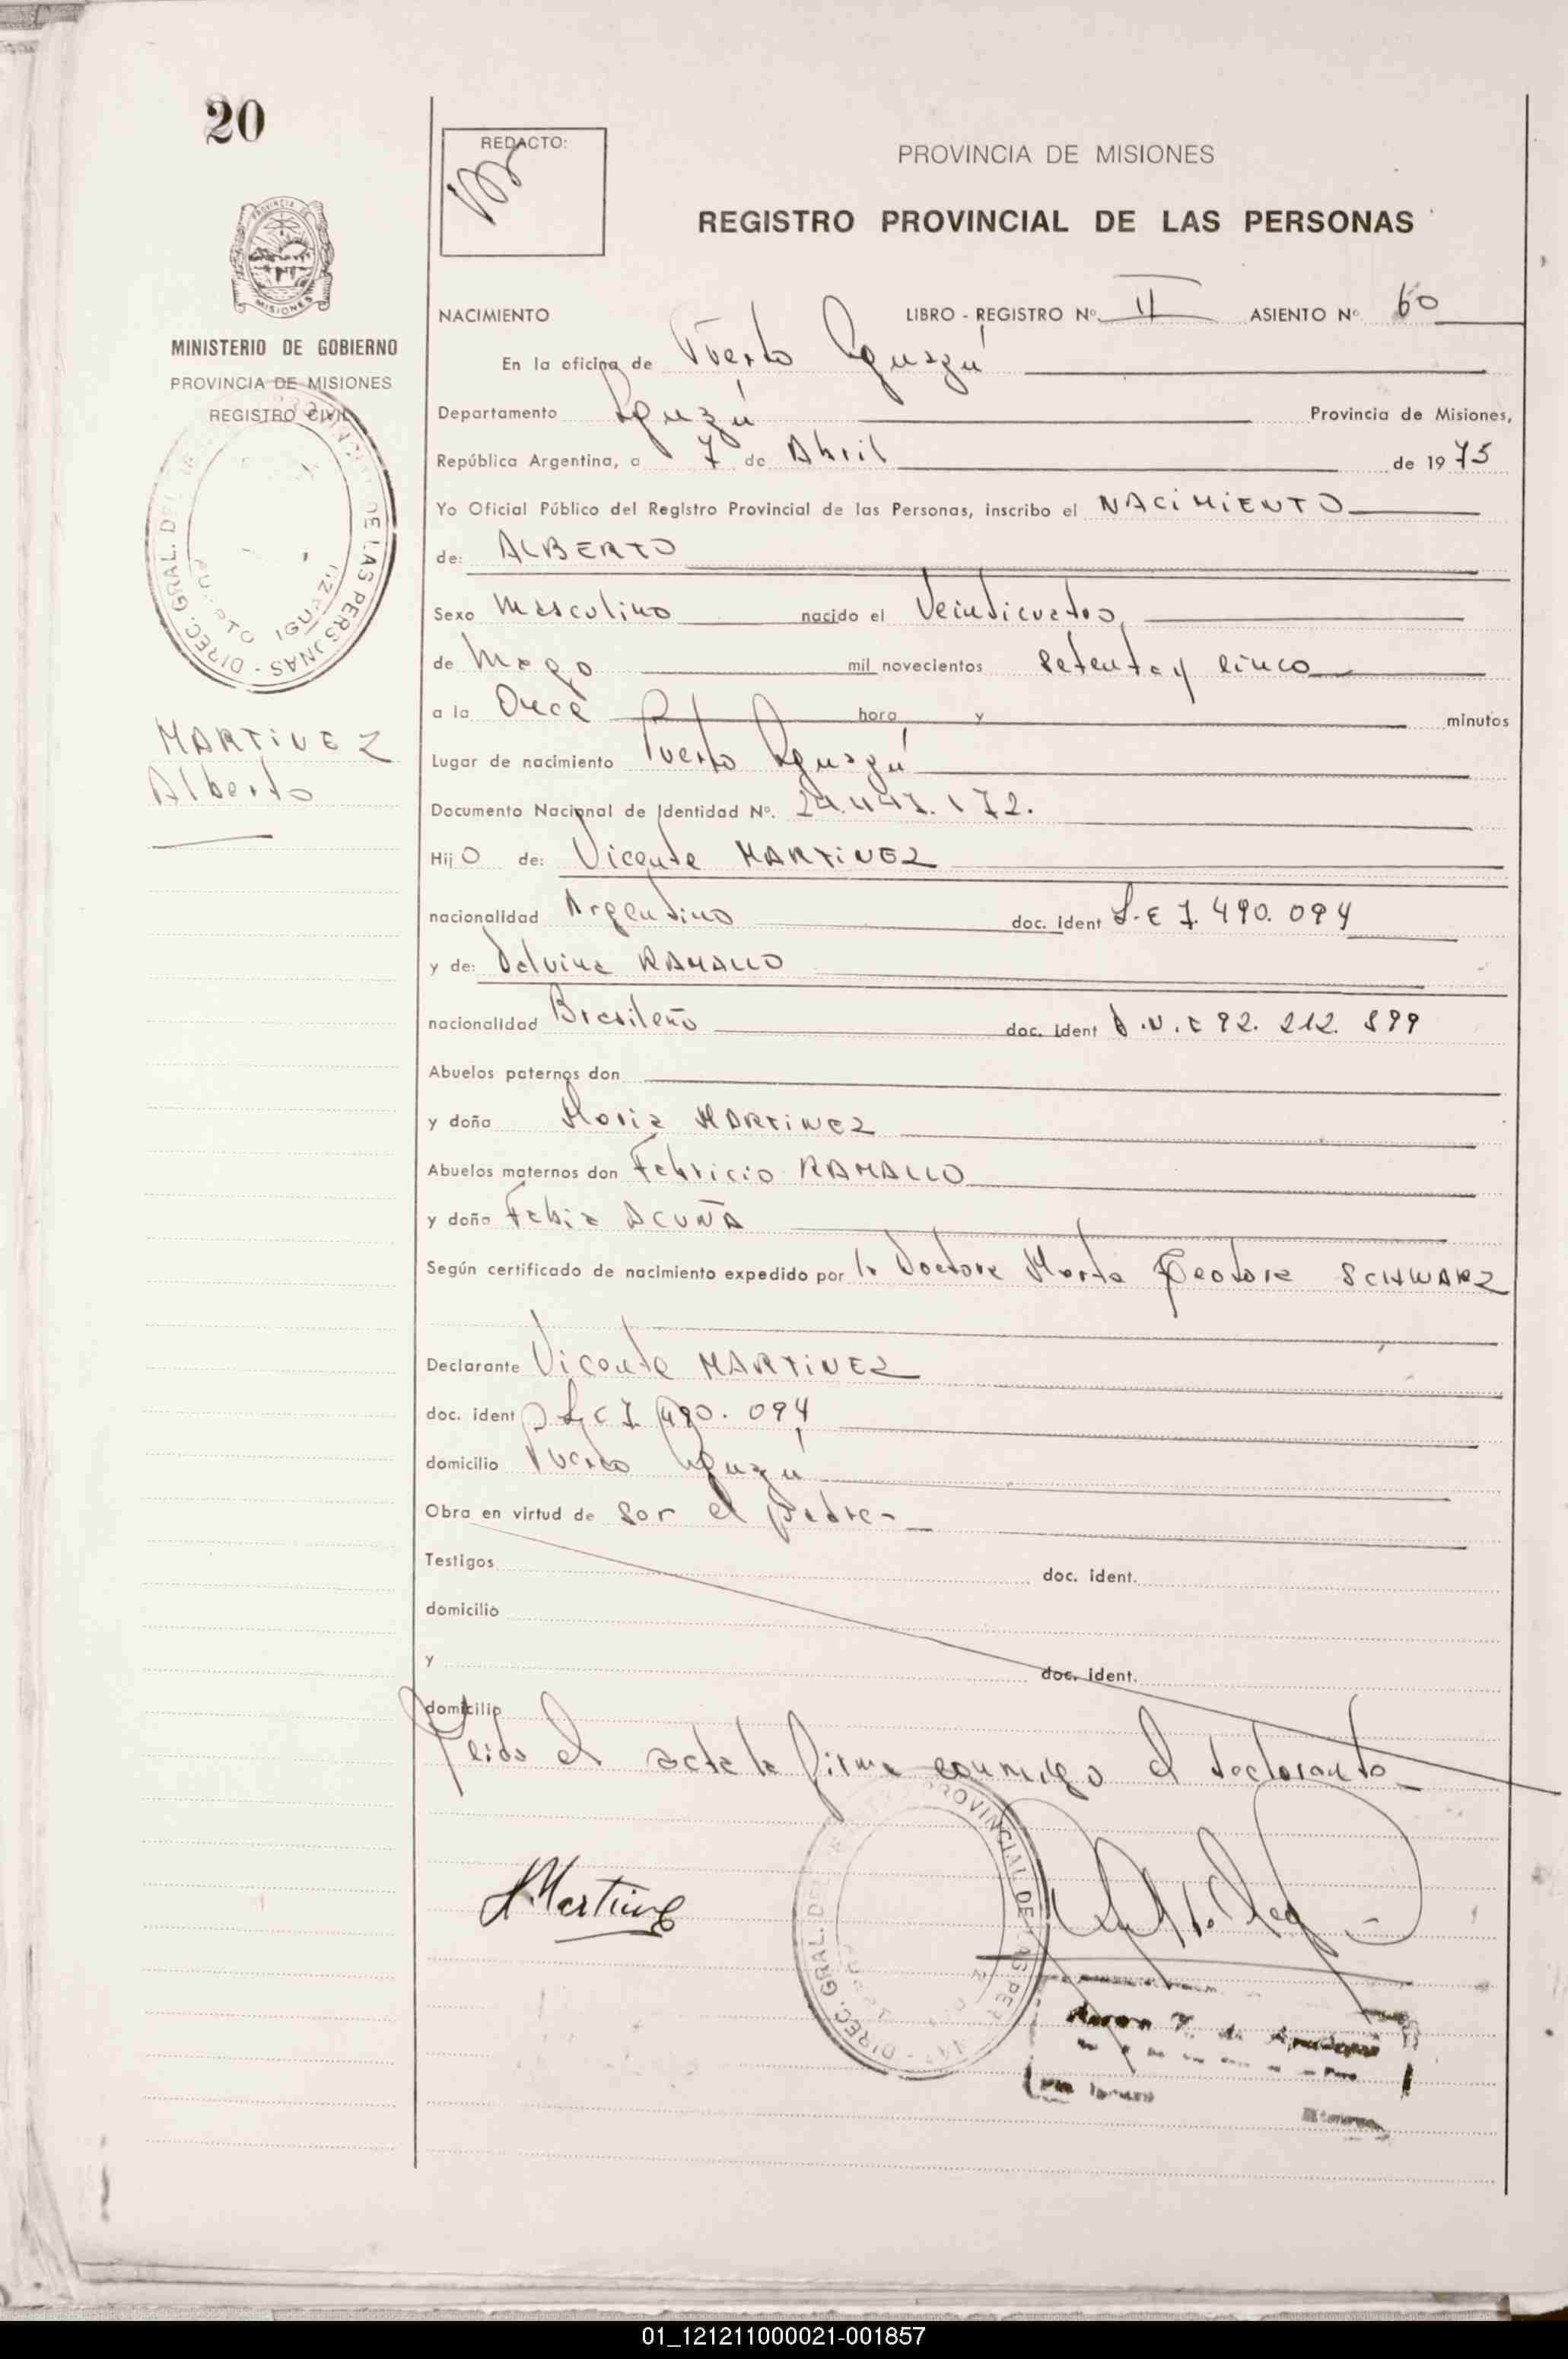 20
REDACTO:
PROVINCIA DE MISIONES
REGISTRO PROVINCIAL DE LAS PERSONAS
PROVINCIA DE
MISIONES
MINISTERIO DE GOBIERNO
PROVINCIA DE MISIONES
REGISTRO CIVIL
DIREC. GRAL. DEL PROVINCIAL DE LAS PERSONAS
PUERTO IGUAZU
MARTINEZ
Alberto
NACIMIENTO LIBRO - REGISTRO Nº II ASIENTO Nº 60
En la oficina de Puerto Iguazú
Departamento Iguazú Provincia de Misiones,
República Argentina, a 7 de Abril de 1975
Yo Oficial Público del Registro Provincial de las Personas, inscribo el NACIMIENTO
de: ALBERTO
Sexo Masculino nacido el Veinticuatro
de mil novecientos setenta y cinco
a la Once hora y minutos
Lugar de nacimiento Puerto Iguazú
Documento Nacional de Identidad Nº. 24.447.172.
Hijo de: Vicente MARTINEZ
nacionalidad Argentino doc. ident L.E 7.490.094
y de: Delvina RAMALLO
nacionalidad Brasileña doc. ident D.N.I 92.212.899
Abuelos paternos don
y doña María MARTINEZ
Abuelos maternos don Fabricio RAMALLO
y doña Fabia ACUÑA
Según certificado de nacimiento expedido por la Doctora Marta Teodora SCHWARZ
Declarante Vicente MARTINEZ
doc. ident L.E 7.490.094
domicilio Puerto Iguazú
Obra en virtud de ser el padre-
Testigos doc. ident.
domicilio
y doc. ident.
domicilio
Leida el acta la firma conmigo el declarante
Martinez
DIREC. GRAL. DEL PROVINCIAL DE LAS PERSONAS
01_121211000021-001857